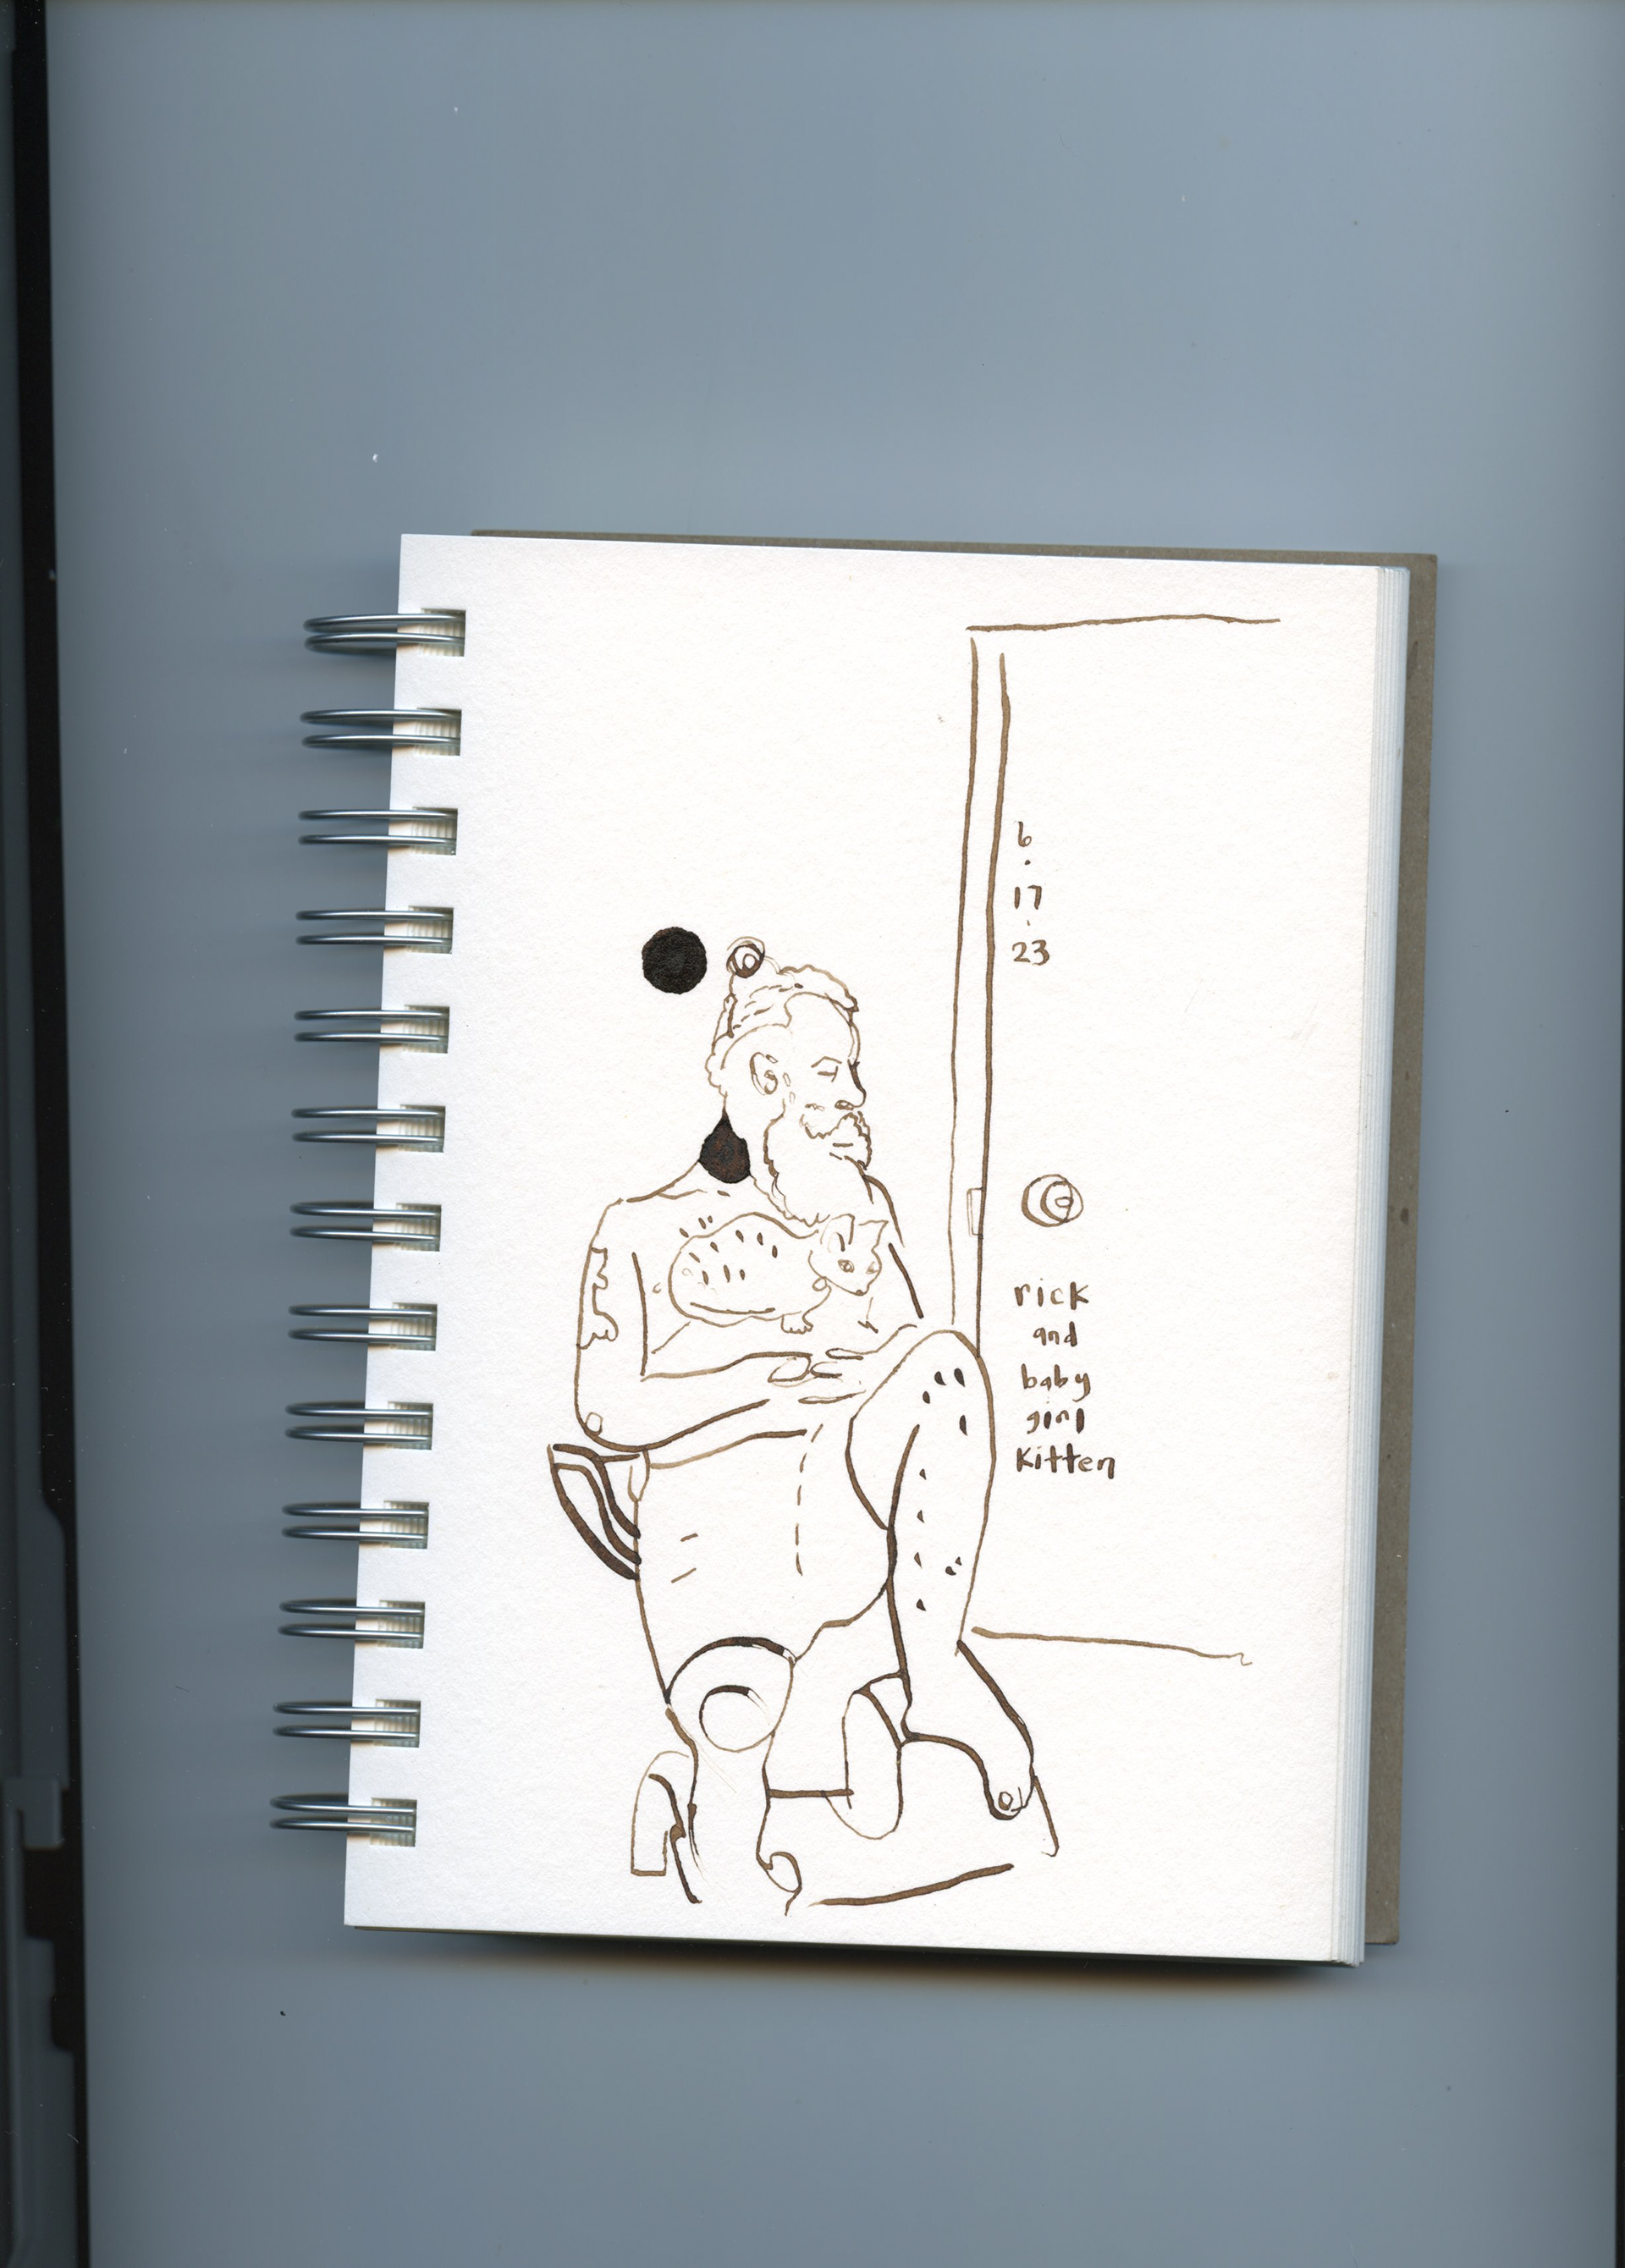 6
.
17
.
23
rick
and
baby
girl
kitten